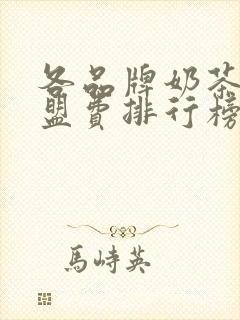 各品牌奶茶
盟费排行榜
馬峙英